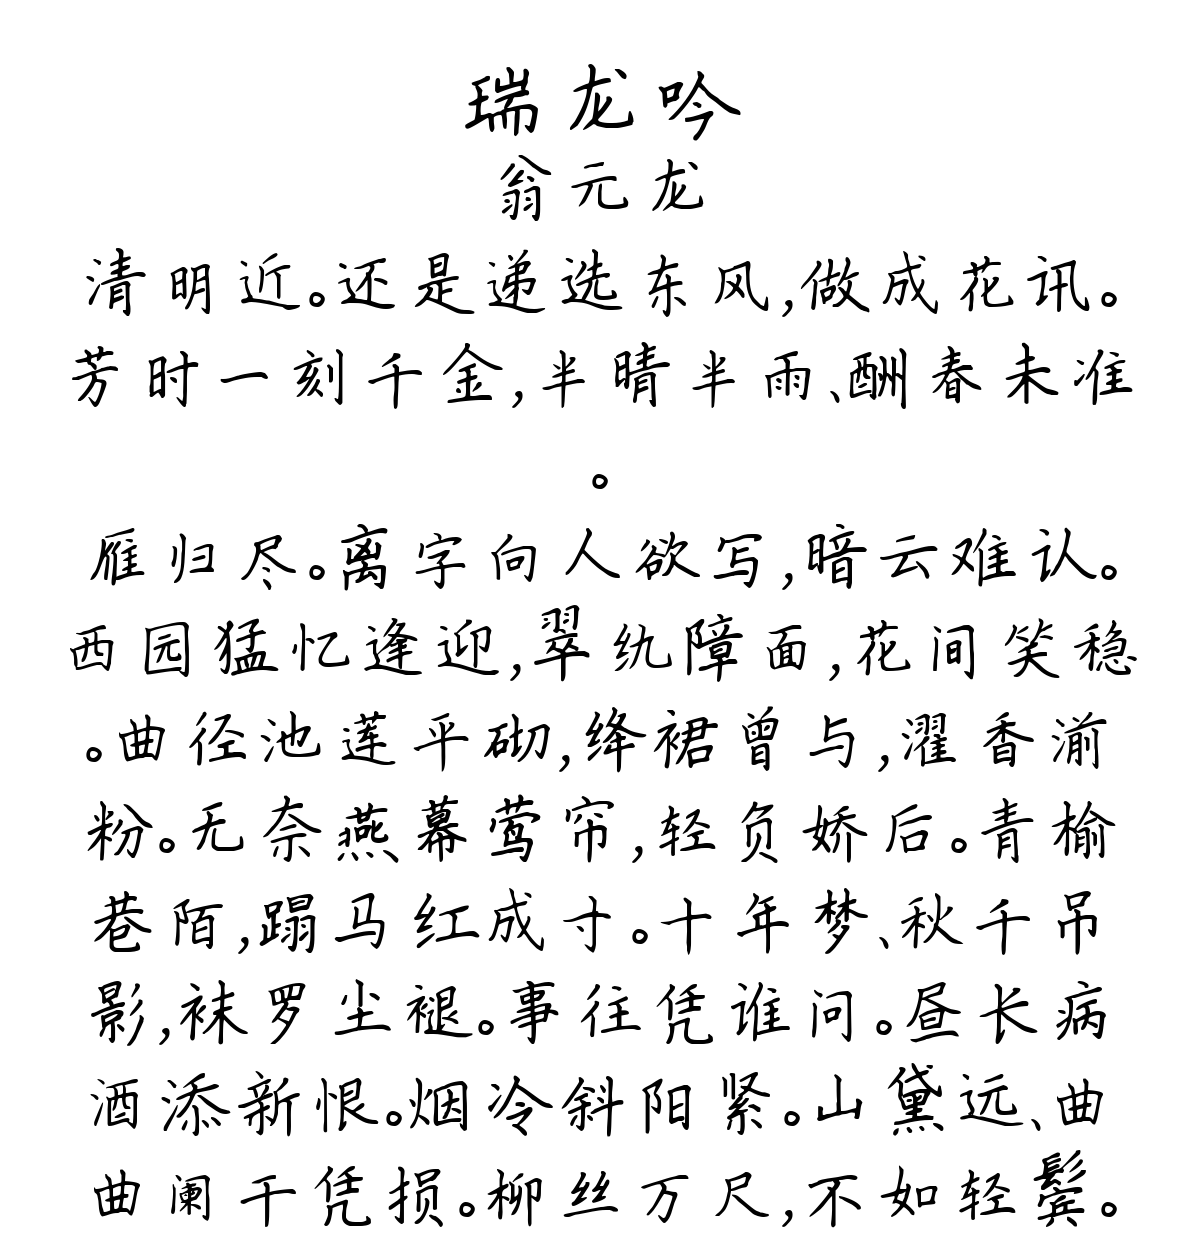 瑞龙吟
翁元龙
清明近。还是递选东风,做成花讯。
芳时一刻千金,半晴半雨、酬春未准
。
雁归尽。离字向人欲写,暗云难认。
西园猛忆逢迎,翠纨障面,花间笑稳
。曲径池莲平砌,绛裙曾与,濯香湔
粉。无奈燕幕莺帘,轻负娇后。青榆
巷陌,蹋马红成寸。十年梦、秋千吊
影,袜罗尘褪。事往凭谁问。昼长病
酒添新恨。烟冷斜阳紧。山黛远、曲
曲阑干凭损。柳丝万尺,不如轻鬓。